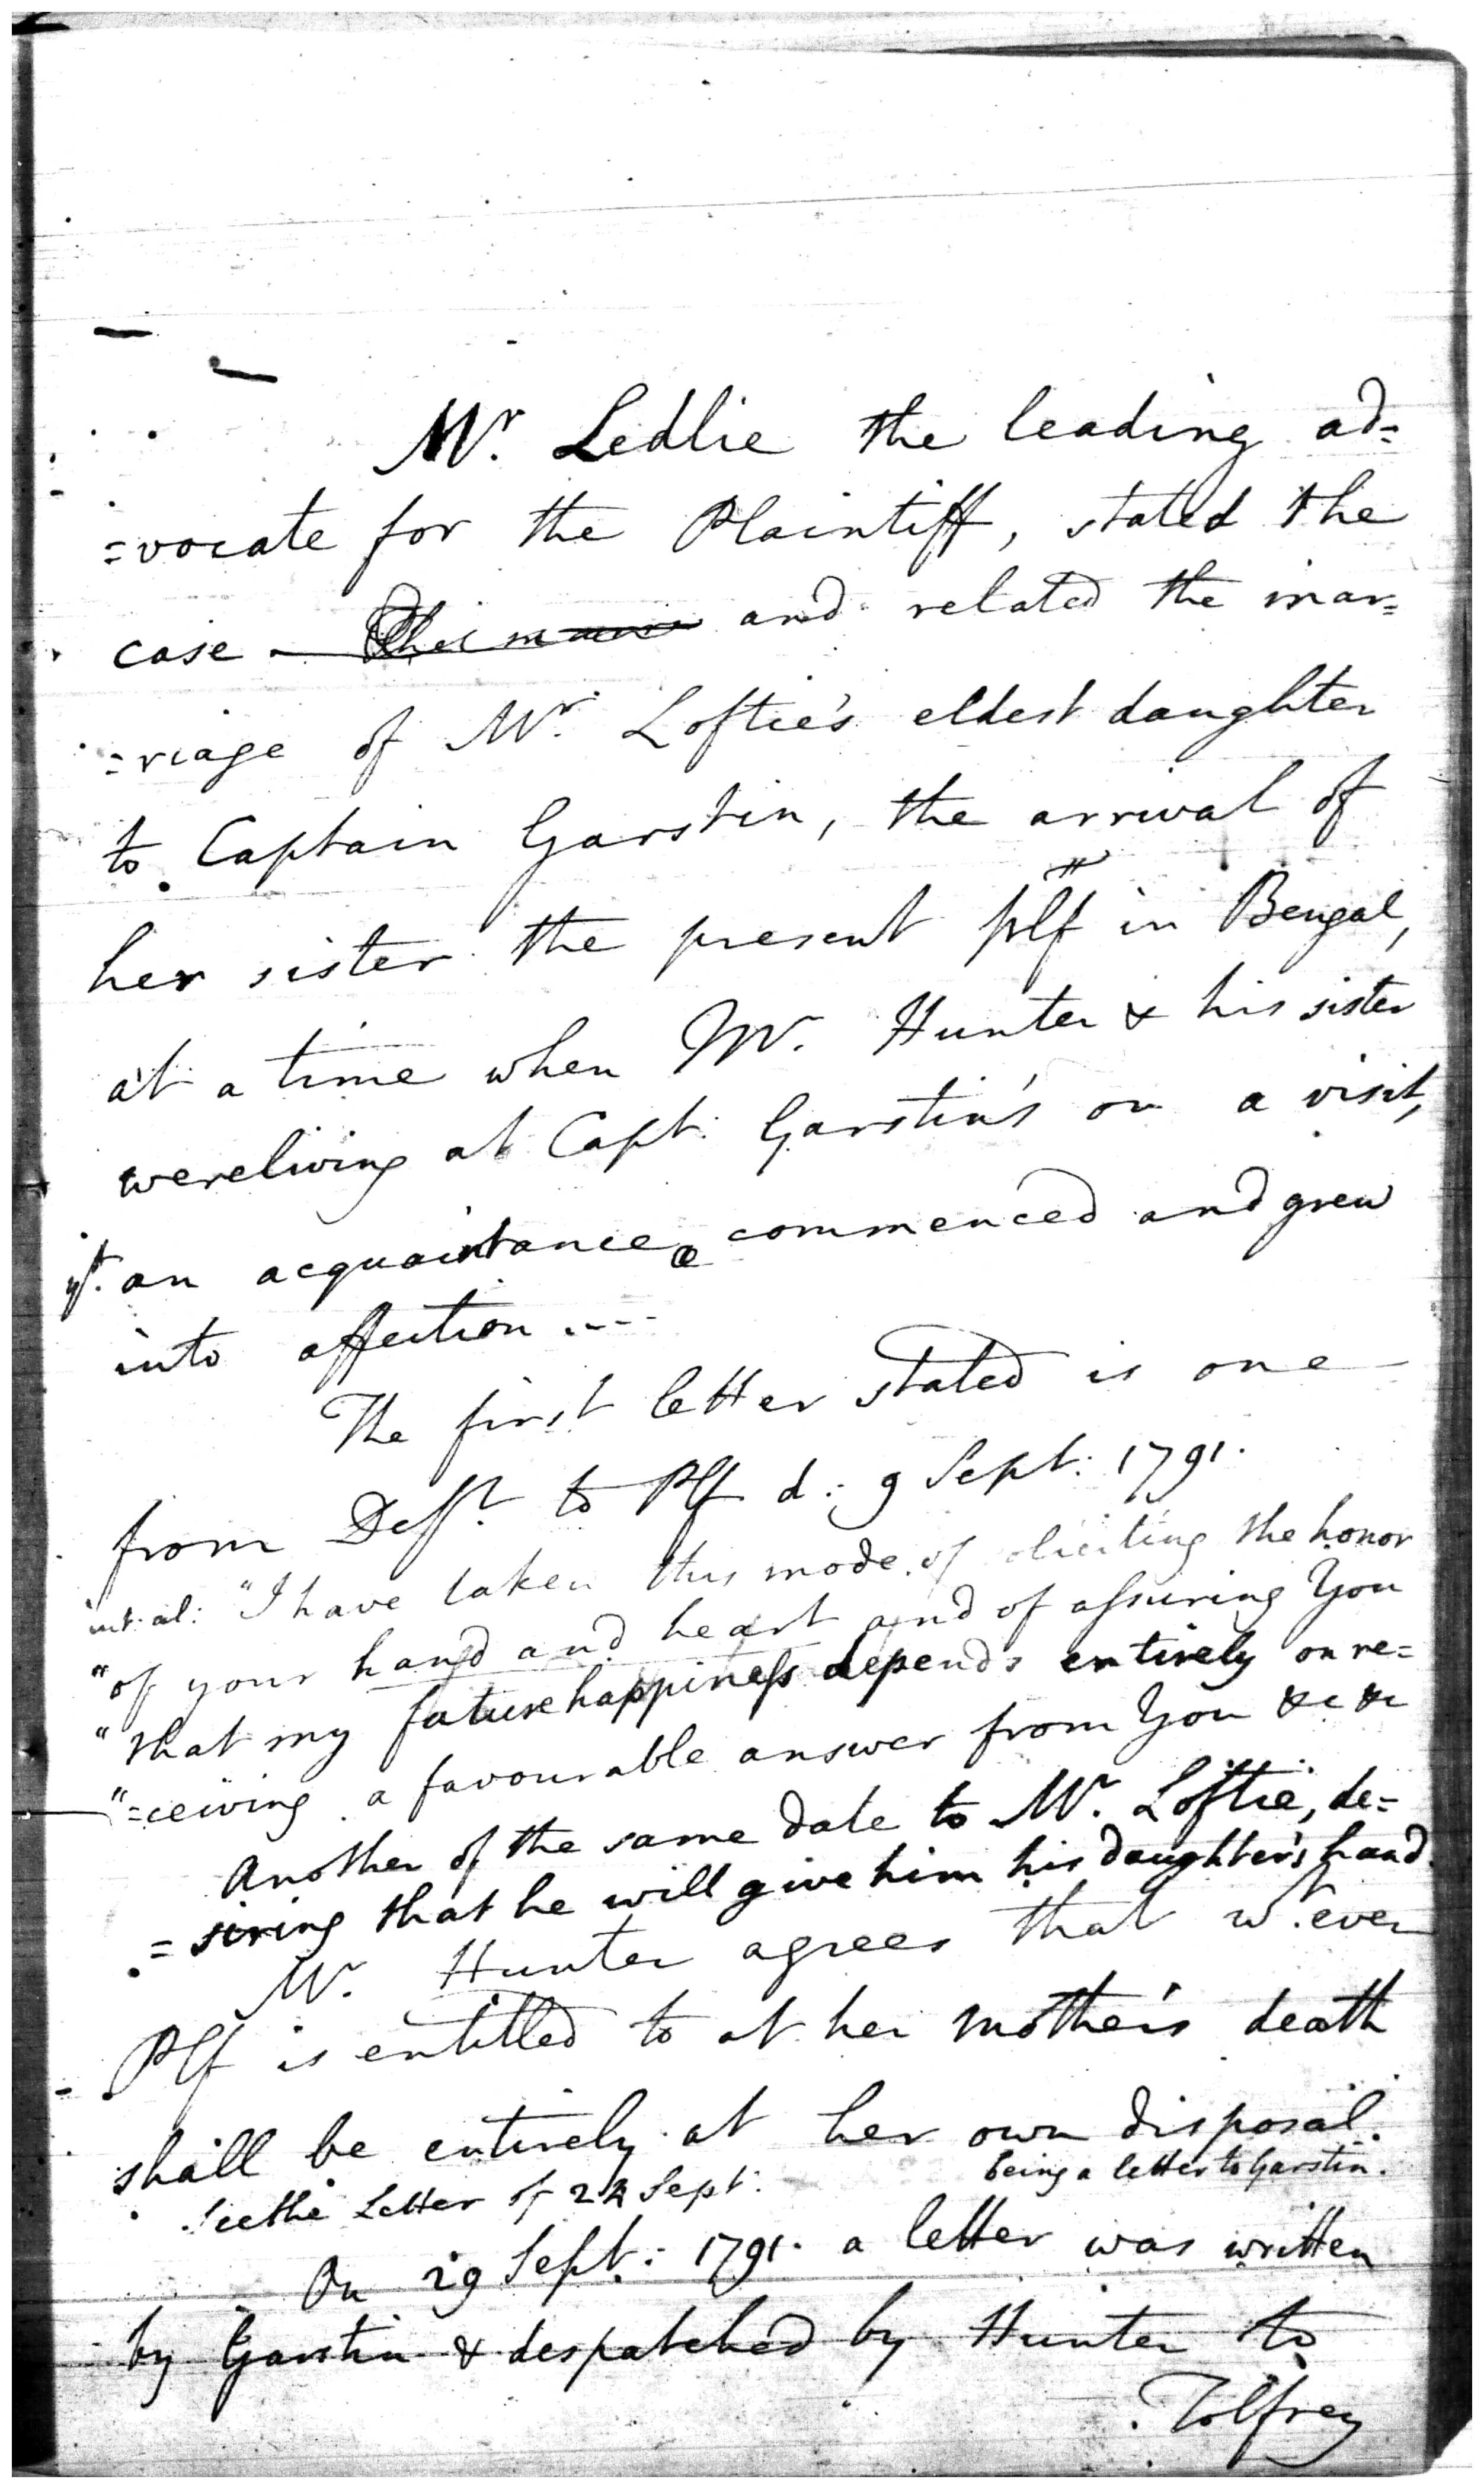 Mr. Ledlie the leading ad=
=vocate for the Plaintiff, stated the
case and related the mar=
=riage of Mr. Loftie's eldest daughter
to Captain Garstin, the arrival of
her sister the present plff in Bengal,
at a time when Mr. Hunter & his sister
were living at Capt: Garstin's on a visit,
yt. an acquaintance commenced and grew
into affection ....
The first letter stated is one
from Deft to Plf d: 9 Sept: 1791.
int: al: "I have taken this mode of soliciting the honor
"of your hand and heart and of assuring You
"that my future happiness depends entirely on re=
"=ceiving a favourable answer from You &c &c
Another of the same date to Mr. Loftie, de=
=siring that he will give him his daughter's hand.
Mr. Hunter agrees that wt.ever
Plf is entitled to at her mother's death
shall be entirely at her own disposal.
See the Letter of 22 Sept: being a letter to Garstin.
On 29 Sept: 1791. a letter was written
by Garstin & despatched by Hunter to
Tolfrey